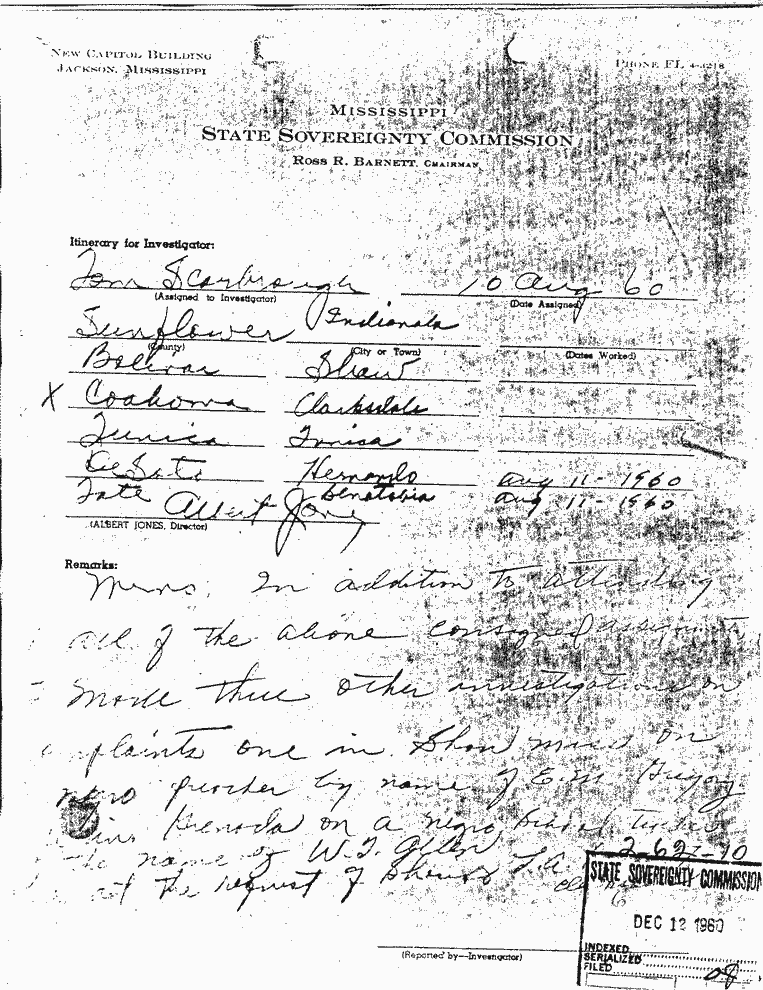 NEW CAPITOL BUILDING
JACKSON, MISSISSIPPI
PHONE FL 4-3218
MISSISSIPPI
STATE SOVEREIGNTY COMMISSION
ROSS R. BARNETT, CHAIRMAN
Itinerary for Investigator:
Tom Scarbrough 10 Aug 60
(Assigned to Investigator) (Date Assigned)
Sunflower Indianola
(County) (City or Town) (Dates Worked)
Bolivar Shaw
X Coahoma Clarksdale
Tunica Tunica
DeSoto Hernando Aug 11-1960
Tate Senatobia Aug 11-1960
Albert Jones
(ALBERT JONES, Director)
Remarks:
In addition to attending
all of the above consigned
made three other investigations on
one in Shaw Miss on
negro by name of E.M.
on a negro
name of W.T.
at the request of
2-62-10
STATE SOVEREIGNTY COMMISSION
DEC 12 1960
INDEXED
SERIALIZED
FILED
(Reported by—Investigator)